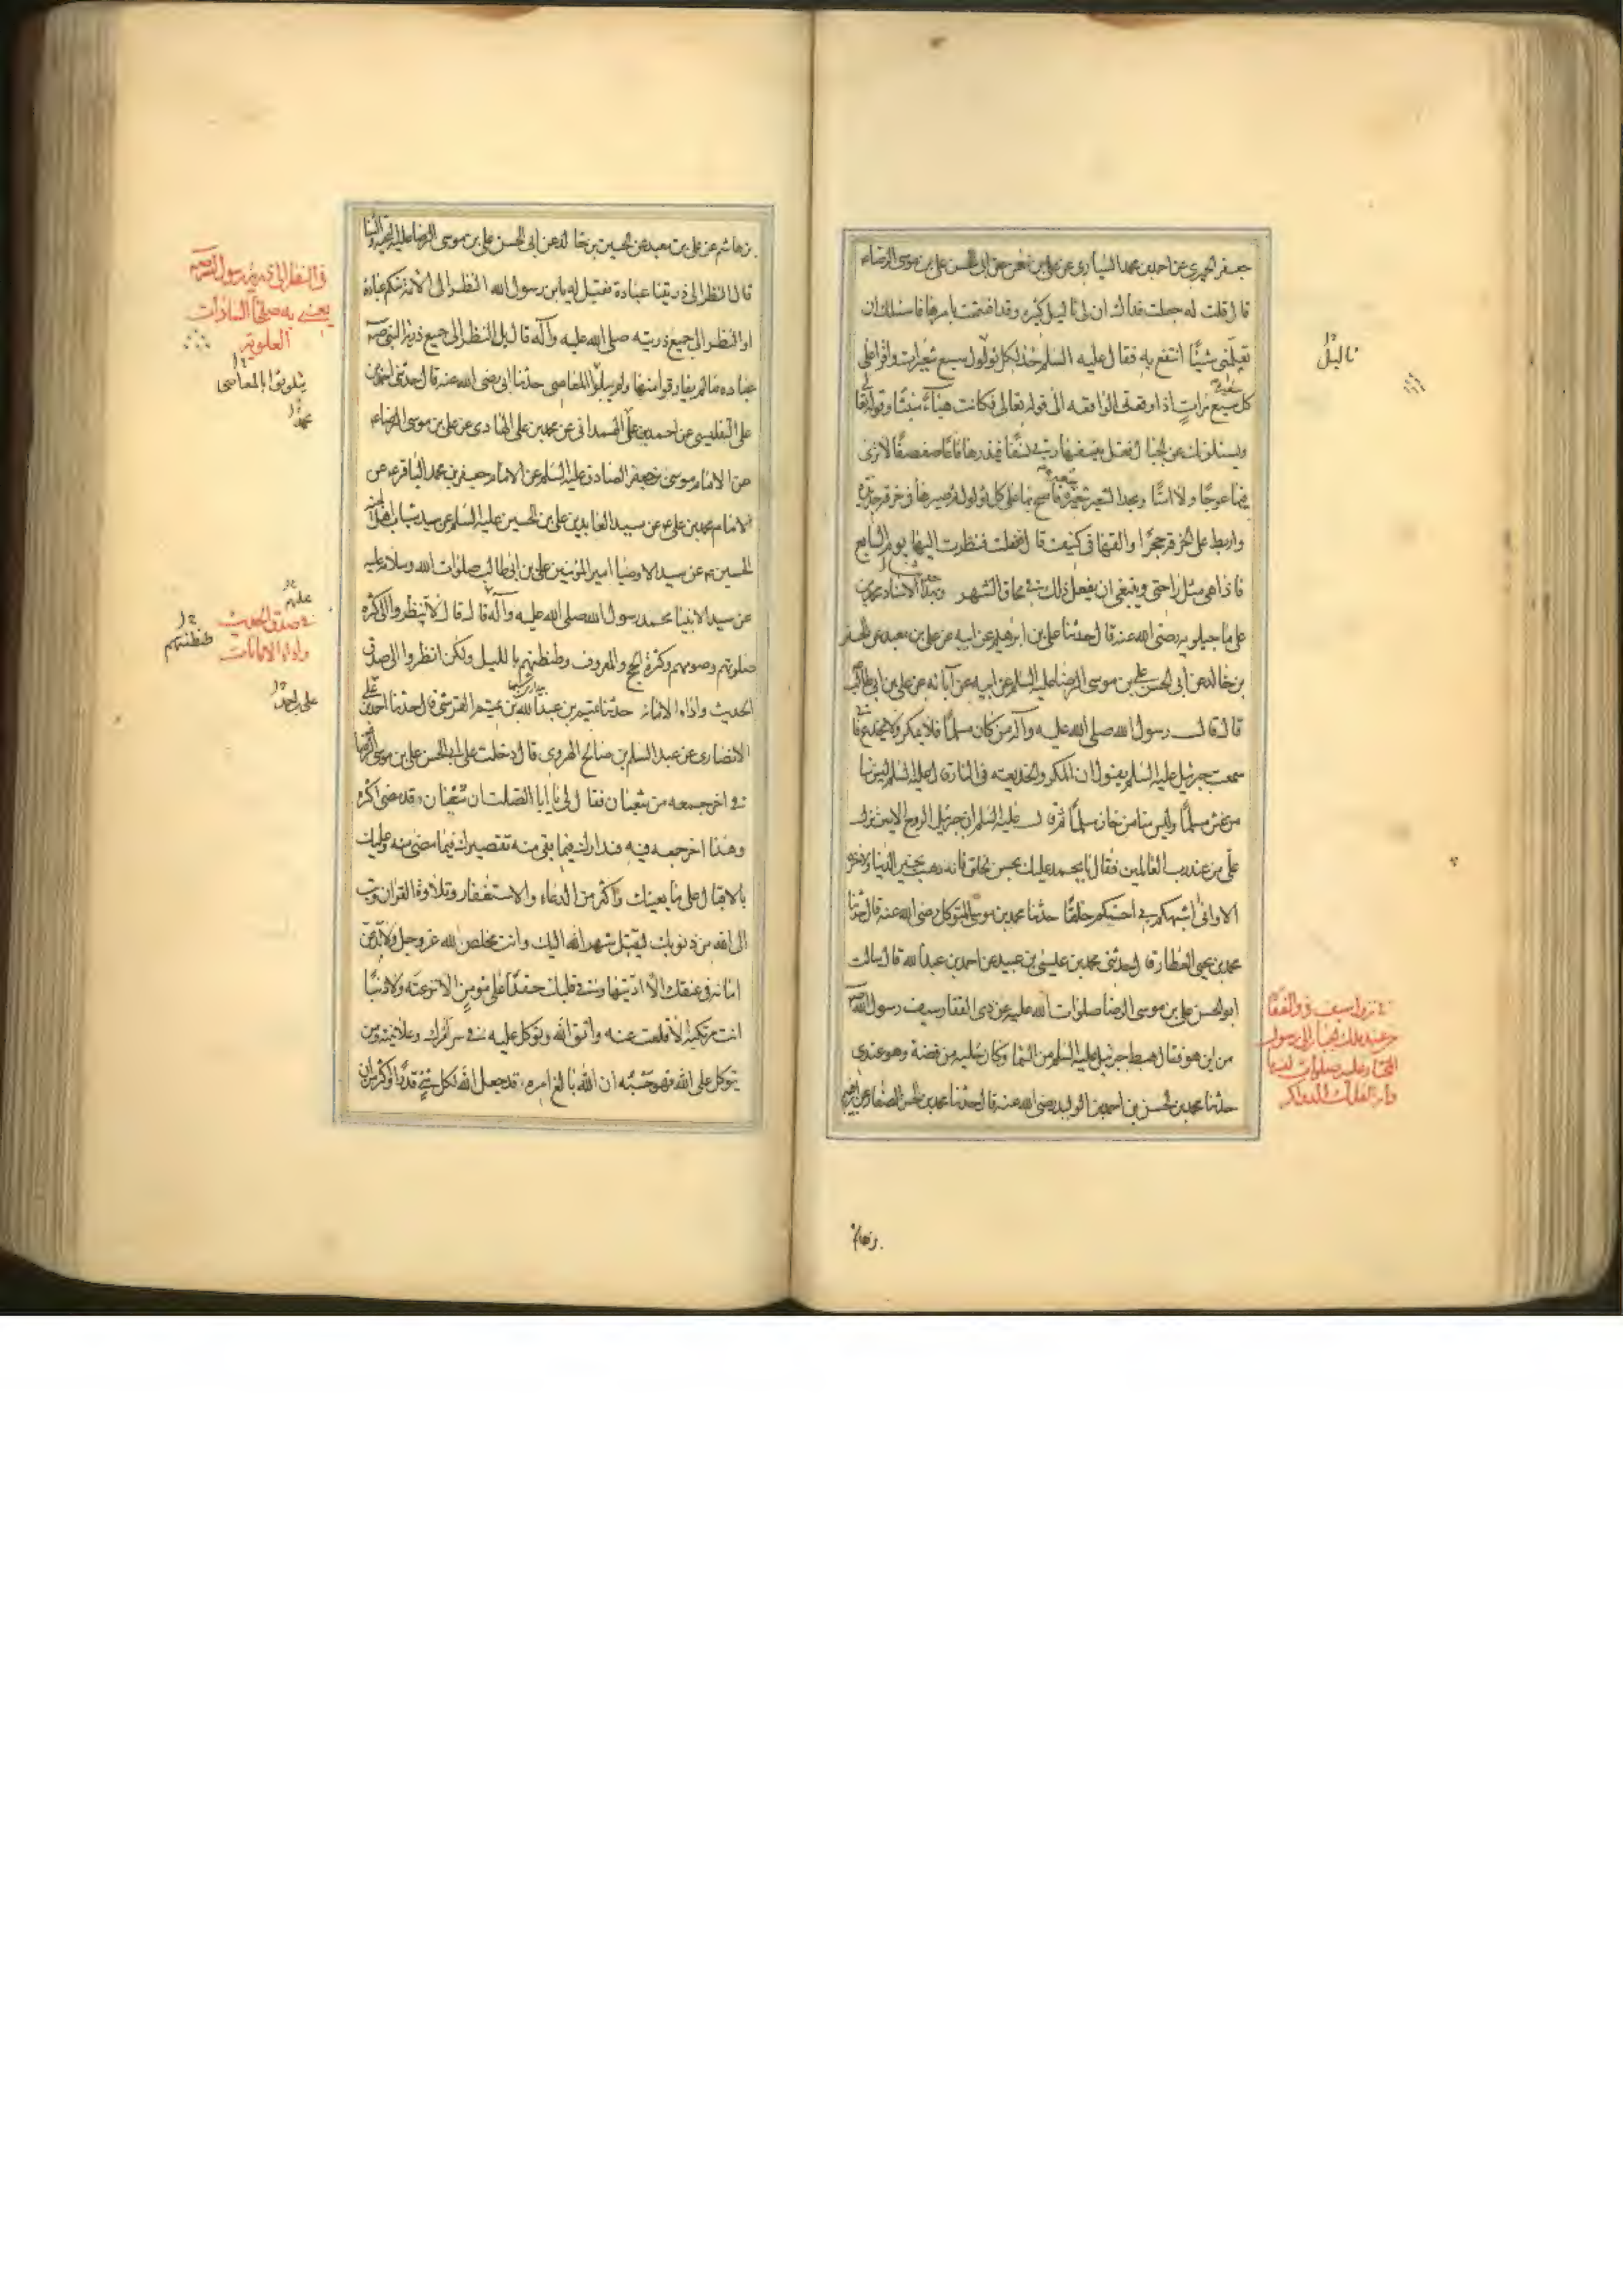 جعفر الحميري عن احمد بن محمد السياري عن علي بن نعمن عن ابي الحسن علي بن موسى الرضا ء
قال قلت له جعلت فداك ان لي ثاليل كثيره وقد اغتممت بامرها فاسئلك ان
تعلمني شيئًا انتفع به فقال عليه السلم خذ لكل ثؤلول سبع شعيرات واقرأ على
كل شعيرة سبع مرات اذا وقعت الواقعه الى قوله تعالى فكانت هباءً منبثًا وقوله تعالى
ويسئلونك عن الجبال فقل ينسفها ربي نسفًا فيذرها قاعًا صفصفًا لا ترى
فيها عوجًا ولا امتًا وتاخذ الشعير شعيرة شعيرة فامسح بها على كل ثؤلول ثم صيرها في خرقة جديدة
واربط على الخرقه حجرًا والقها في كنيف قال ففعلت فنظرت اليها يوم السابع
فاذا هي مثل راحتي وينبغي ان يفعل ذلك في محاق الشهر وبهذا الاسناد محمد بن
علي ماجيلويه رضي الله عنه قال حدثنا علي بن ابرهيم عن ابيه عن علي بن معبد عن الحسين
بن خالد عن ابي الحسن علي بن موسى الرضا عليه السلم عن ابيه عن آبائه عن علي بن ابي طالب
قال قال رسول الله صلى الله عليه وآله من كان مسلمًا فلا يمكر ولا يخدع فاني
سمعت جبرئيل عليه السلم يقول ان المكر والخديعه في النار ثم قال عليه السلم ليس منا
من غش مسلمًا وليس منا من خان مسلمًا ثم قال عليه السلم ان جبرئيل الروح الامين نزل
علي من عند رب العالمين فقال يا محمد عليك بحسن الخلق فانه ذهب بخير الدنيا والآخرة
الا وان اشبهكم بي احسنكم خلقًا حدثنا محمد بن موسى المتوكل رضي الله عنه قال حدثنا
محمد بن يحيى العطار قال حدثني محمد بن عيسى بن عبيد عن احمد بن عبد الله قال سالت
ابو الحسن علي بن موسى الرضا صلوات الله عليه عن ذي الفقار سيف رسول الله ص
من اين هو فقال هبط به جبرئيل عليه السلم من السما وكان حليه من فضة وهو عندي
حدثنا محمد بن الحسن بن احمد بن الوليد رضي الله عنه قال حدثنا محمد بن الحسن الصفار عن ابرهيم
ثاليل
في نزول سيف ذو الفقار
من عند ملك الجبار الى رسول
المختار عليه صلوات
بن هاشم
بن هاشم عن علي بن معبد عن الحسين بن خالد عن ابي الحسن علي بن موسى الرضا عليه التحيه والثنا
قال النظر الى ذريتنا عبادة فقيل له يابن رسول الله النظر الى الائمة منكم عبادة
او النظر الى جميع ذريته صلى الله عليه وآله قال بل النظر الى جميع ذرية النبي ص
عباده ما لم يفارقوا منهاجه ولم يتلوثوا بالمعاصي حدثنا ابي رضي الله عنه قال حدثني احمد بن
علي التفليسي عن احمد بن علي الهمداني عن محمد بن علي الهادي عن علي بن موسى الرضا ء
عن الامام موسى بن جعفر الصادق عليه السلم عن الامام جعفر بن محمد الباقر ء عن
الامام محمد بن علي ء عن سيد العابدين علي بن الحسين عليه السلم عن سيد شباب اهل الجنه
الحسين ء عن سيد الاوصيا امير المؤمنين علي بن ابي طالب صلوات الله وسلامه عليه
عن سيد الانبيا محمد رسول الله صلى الله عليه وآله قال قال لا تنظروا الى كثرة
صلوتهم وصومهم وكثرة الحج والمعروف وطنطنتهم بالليل ولكن انظروا الى صدق
الحديث واداء الامانه حدثنا تميم بن عبد الله بن تميم القرشي قال حدثنا احمد بن علي
الانصاري عن عبد السلم بن صالح الهروي قال دخلت على ابي الحسن علي بن موسى الرضا
في اخر جمعه من شعبان فقال لي يا ابا الصلت ان شعبان قد مضى اكثره
وهذا اخر جمعه فيه فتدارك فيما بقي منه تقصيرك فيما مضى منه وعليك
بالاقبال على ما يعينك واكثر من الدعاء والاستغفار وتلاوة القران وتب
الى الله من ذنوبك ليقبل شهر الله اليك وانت مخلص لله عز وجل ولا تدعن
امانه في عنقك الا اديتها وفي قلبك حقدًا على مؤمنٍ الا نزعته ولا ذنبًا
انت مرتكبه الا قلعت عنه واتق الله وتوكل عليه في سر امرك وعلانيته ومن
يتوكل على الله فهو حسبه ان الله بالغ امره قد جعل الله لكل شيءٍ قدرًا واكثر من ان
في النظر الى ذرية رسول الله ص
يعني به صلحا السادات
العلويه
يتلوثوا بالمعاصي
محمد
عليهم
في صدق الحديث
واداء الامانات
طنطنتهم
علي بن احمد